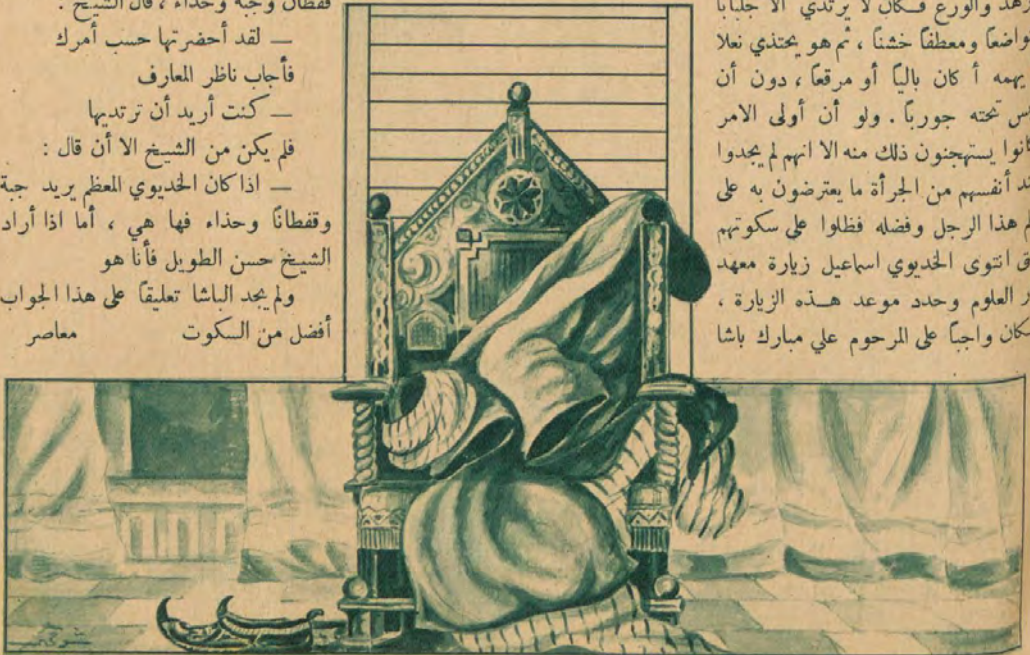 والورع فكان لا يرتدي الا جلبابا
ومعطفاً خشناً ، ثم هو يحتذي نعلا
يهمه أ كان بالياً أو مرقعاً ، دون أن
تحته جورباً . ولو أن أولى الامر
كانوا يستهجنون ذلك منه الا انهم لم يجدوا
أنفسهم من الجرأة ما يعترضون به على
هذا الرجل وفضله فظلوا على سكوتهم
انتوى الخديوي اسماعيل زيارة معهد
العلوم وحدد موعد هــذه الزيارة ،
فكان واجباً على المرحوم علي مبارك باشا
قفطان وجبة وحذاء ، قال الشيخ :
ــ لقد أحضرتها حسب أمرك
فأجاب ناظر المعارف
ــ كنت أريد أن ترتديها
فلم يكن من الشيخ الا أن قال :
ــ اذا كان الخديوي المعظم يريد جبة
وقفطانًا وحذاء فها هي ، أما اذا أراد
الشيخ حسن الطويل فأنا هو
ولم يجد الباشا تعليقاً على هذا الجواب
أفضل من السكوت معاصر